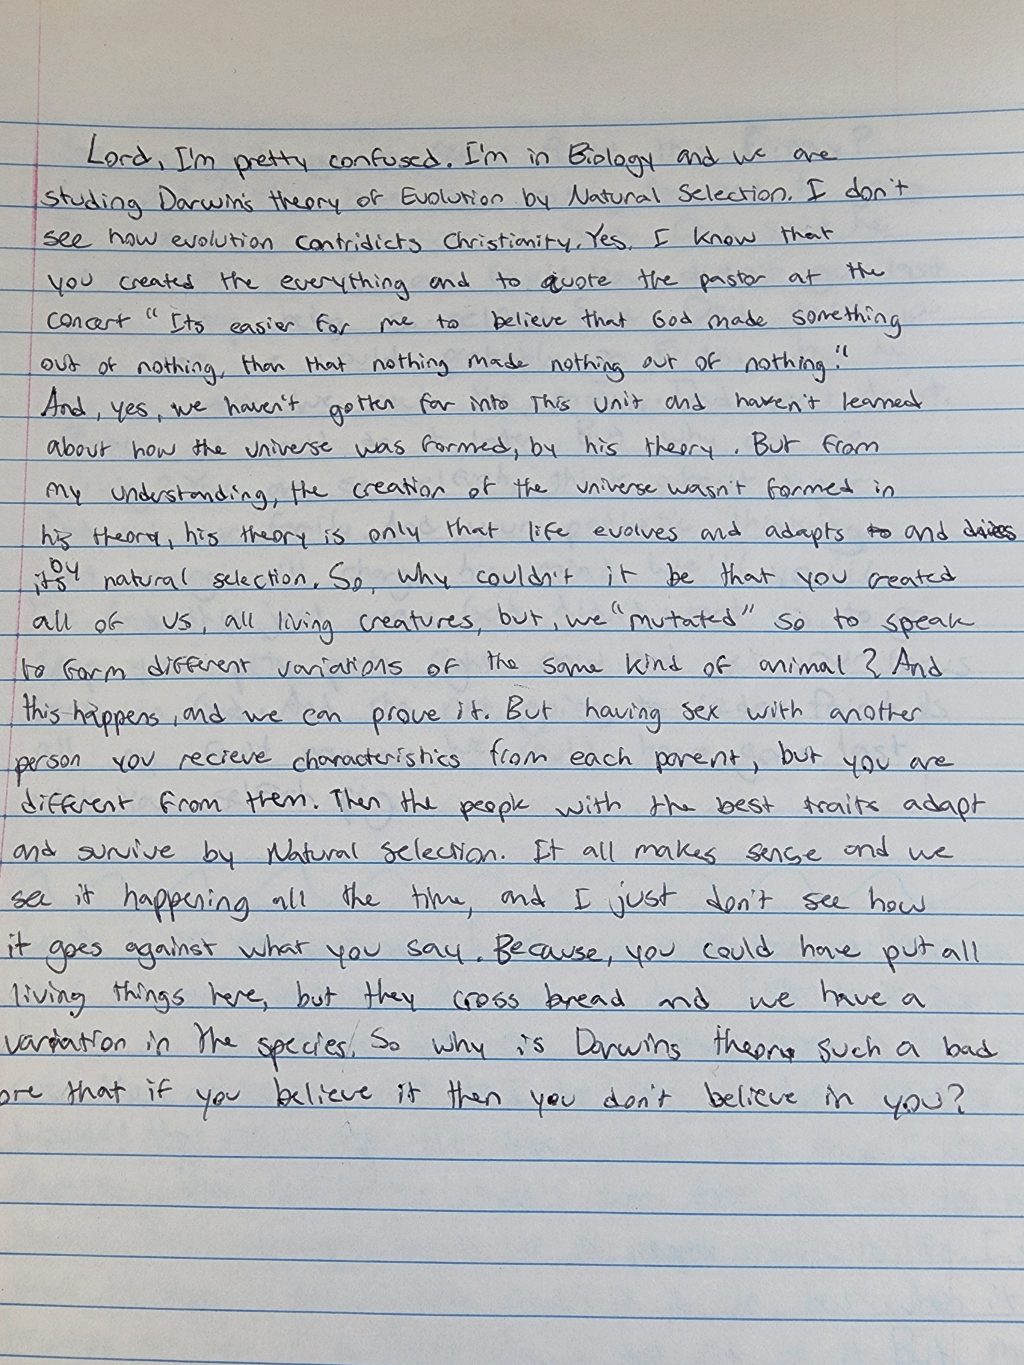 Lord, I'm pretty confused. I'm in Biology and we are
studing Darwin's theory of Evolution by Natural Selection. I don't
see how evolution contridicts Christianity. Yes, I know that
you created the everything and to quote the pastor at the
concert "Its easier for me to believe that God made something
out of nothing, than that nothing made nothing out of nothing."
And, yes, we haven't gotten far into This unit and haven't learned
about how the universe was formed, by his theory. But from
my understanding, the creation of the universe wasn't formed in
his theory, his theory is only that life evolves and adapts to and
its by natural selection. So, why couldn't it be that you created
all of us, all living creatures, but, we "mutated" so to speak
to form different variations of the same kind of animal? And
this happens, and we can prove it. But having sex with another
person you recieve characteristics from each parent, but you are
different from them. Then the people with the best traits adapt
and survive by Natural Selection. It all makes sense and we
see it happening all the time, and I just don't see how
it goes against what you say. Because, you could have put all
living things here, but they cross bread and we have a
variation in the species. So why is Darwins theory such a bad
one that if you believe it then you don't believe in you?